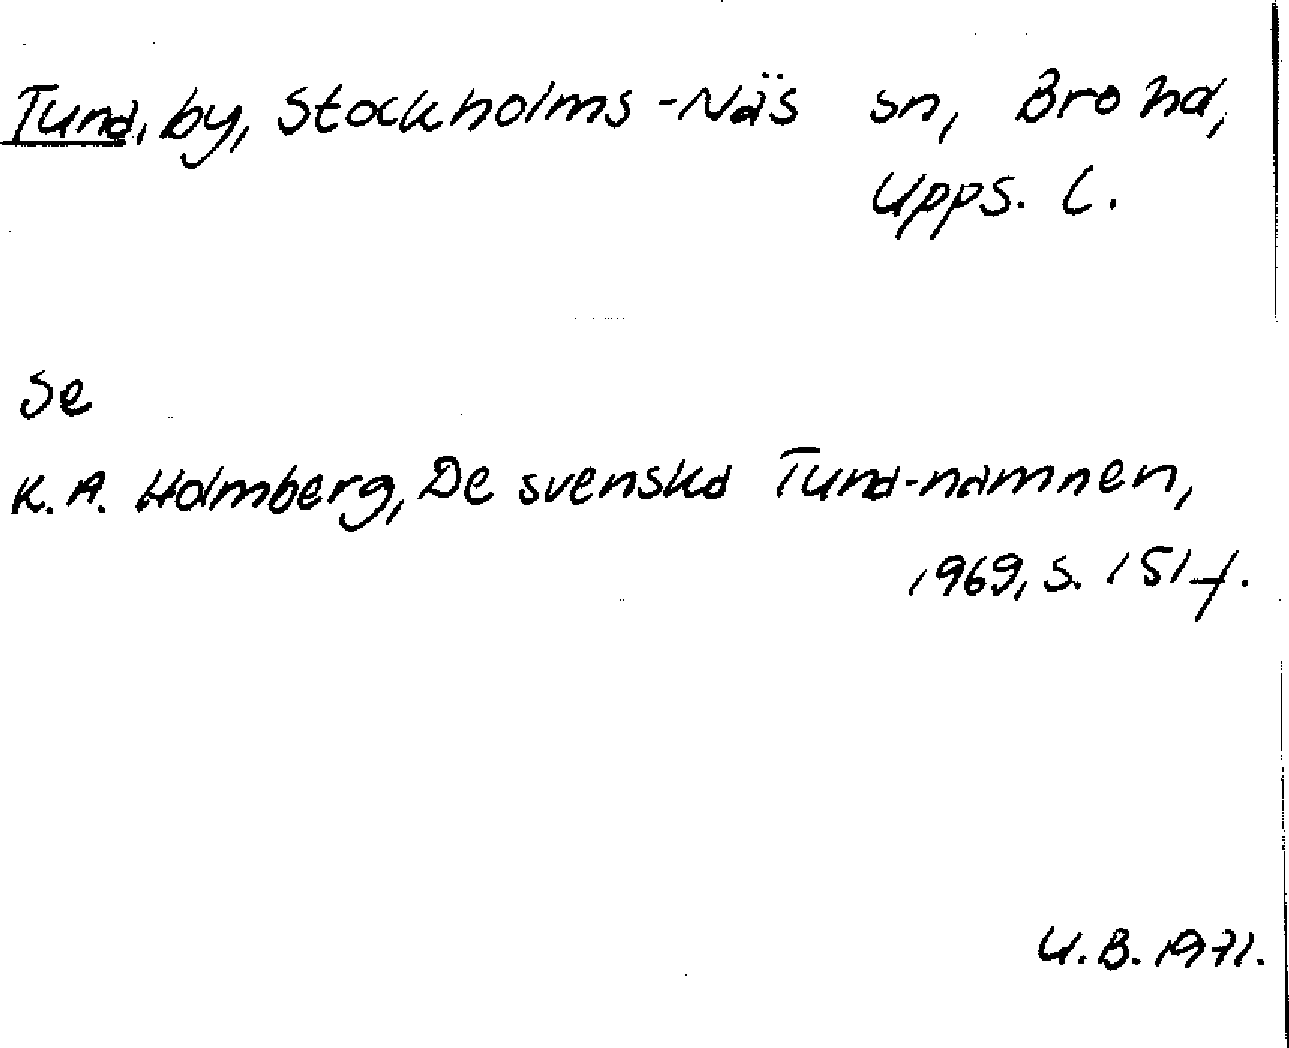 Tuna, by, Stockholms-Näs sn, Bro hd,
Upps. l.
Se
K. A. Holmberg, De svenska Tuna-namnen,
1969, s. 151 f.
U. B. 1971.